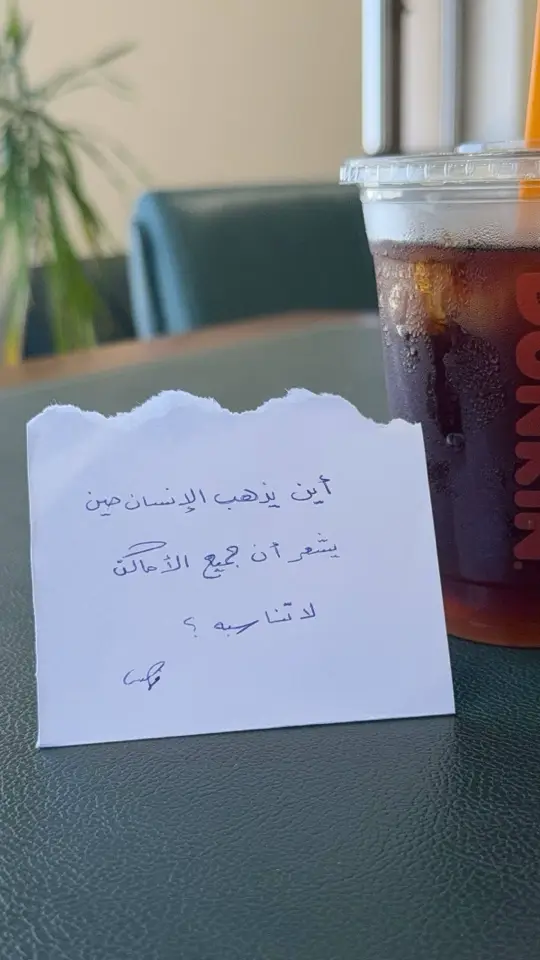 أين يذهب الإنسان حين
يشعر أن جميع الأماكن
لا تناسبه ؟
DUNKIN'